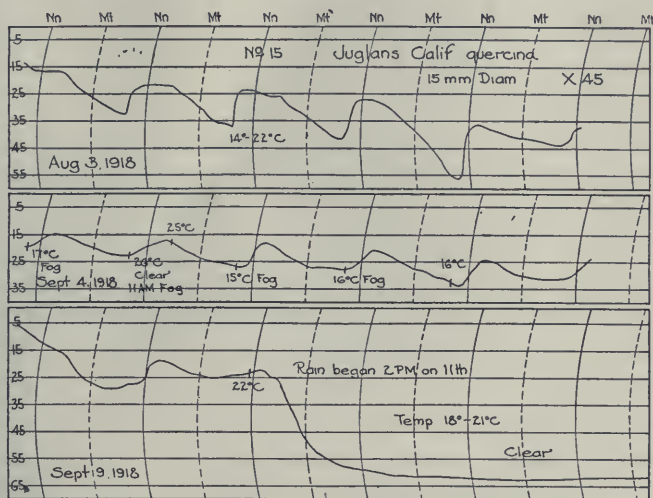 Nn Mt Nn Mt Nn Mt Nn Mt Nn Mt Nn Mt
5
15
25
35
45
55
Nº 15 Juglans Calif quercina
15 mm Diam X 45
14°-22°C
Aug 3, 1918
5
15
25
35
25°C
17°C
Fog
26°C
Clear
11AM Fog
15°C Fog
16°C Fog
16°C
Sept 4, 1918
5
15
25
35
45
55
65
Rain began 2PM on 11th
22°C
Temp 18°-21°C
Clear
Sept 9, 1918